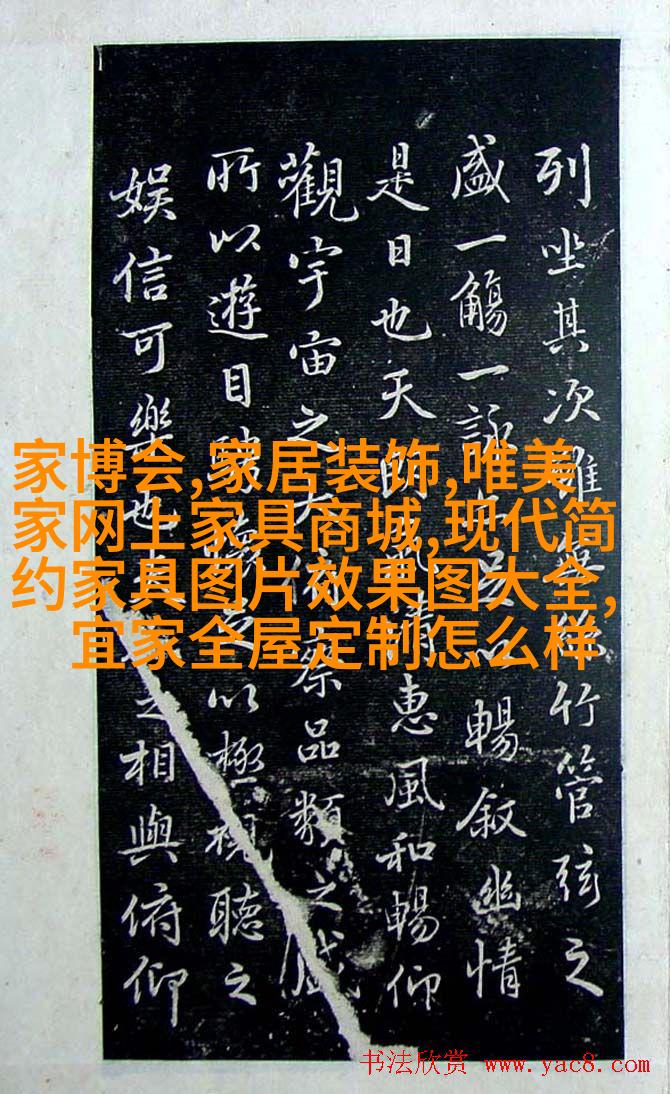 家博会,家居装饰,唯美
家网上家具商城,现代简
约家具图片效果图大全,
宜家全屋定制怎么样
列坐其次雖絲竹管弦之
盛一觴一詠以暢叙幽情
是日也天朗清惠風和暢仰
觀宇宙之大察品類之盛
所以遊目騁以極視聽之
娛信可樂也之相與俯仰
书法欣赏 www.yac8.com